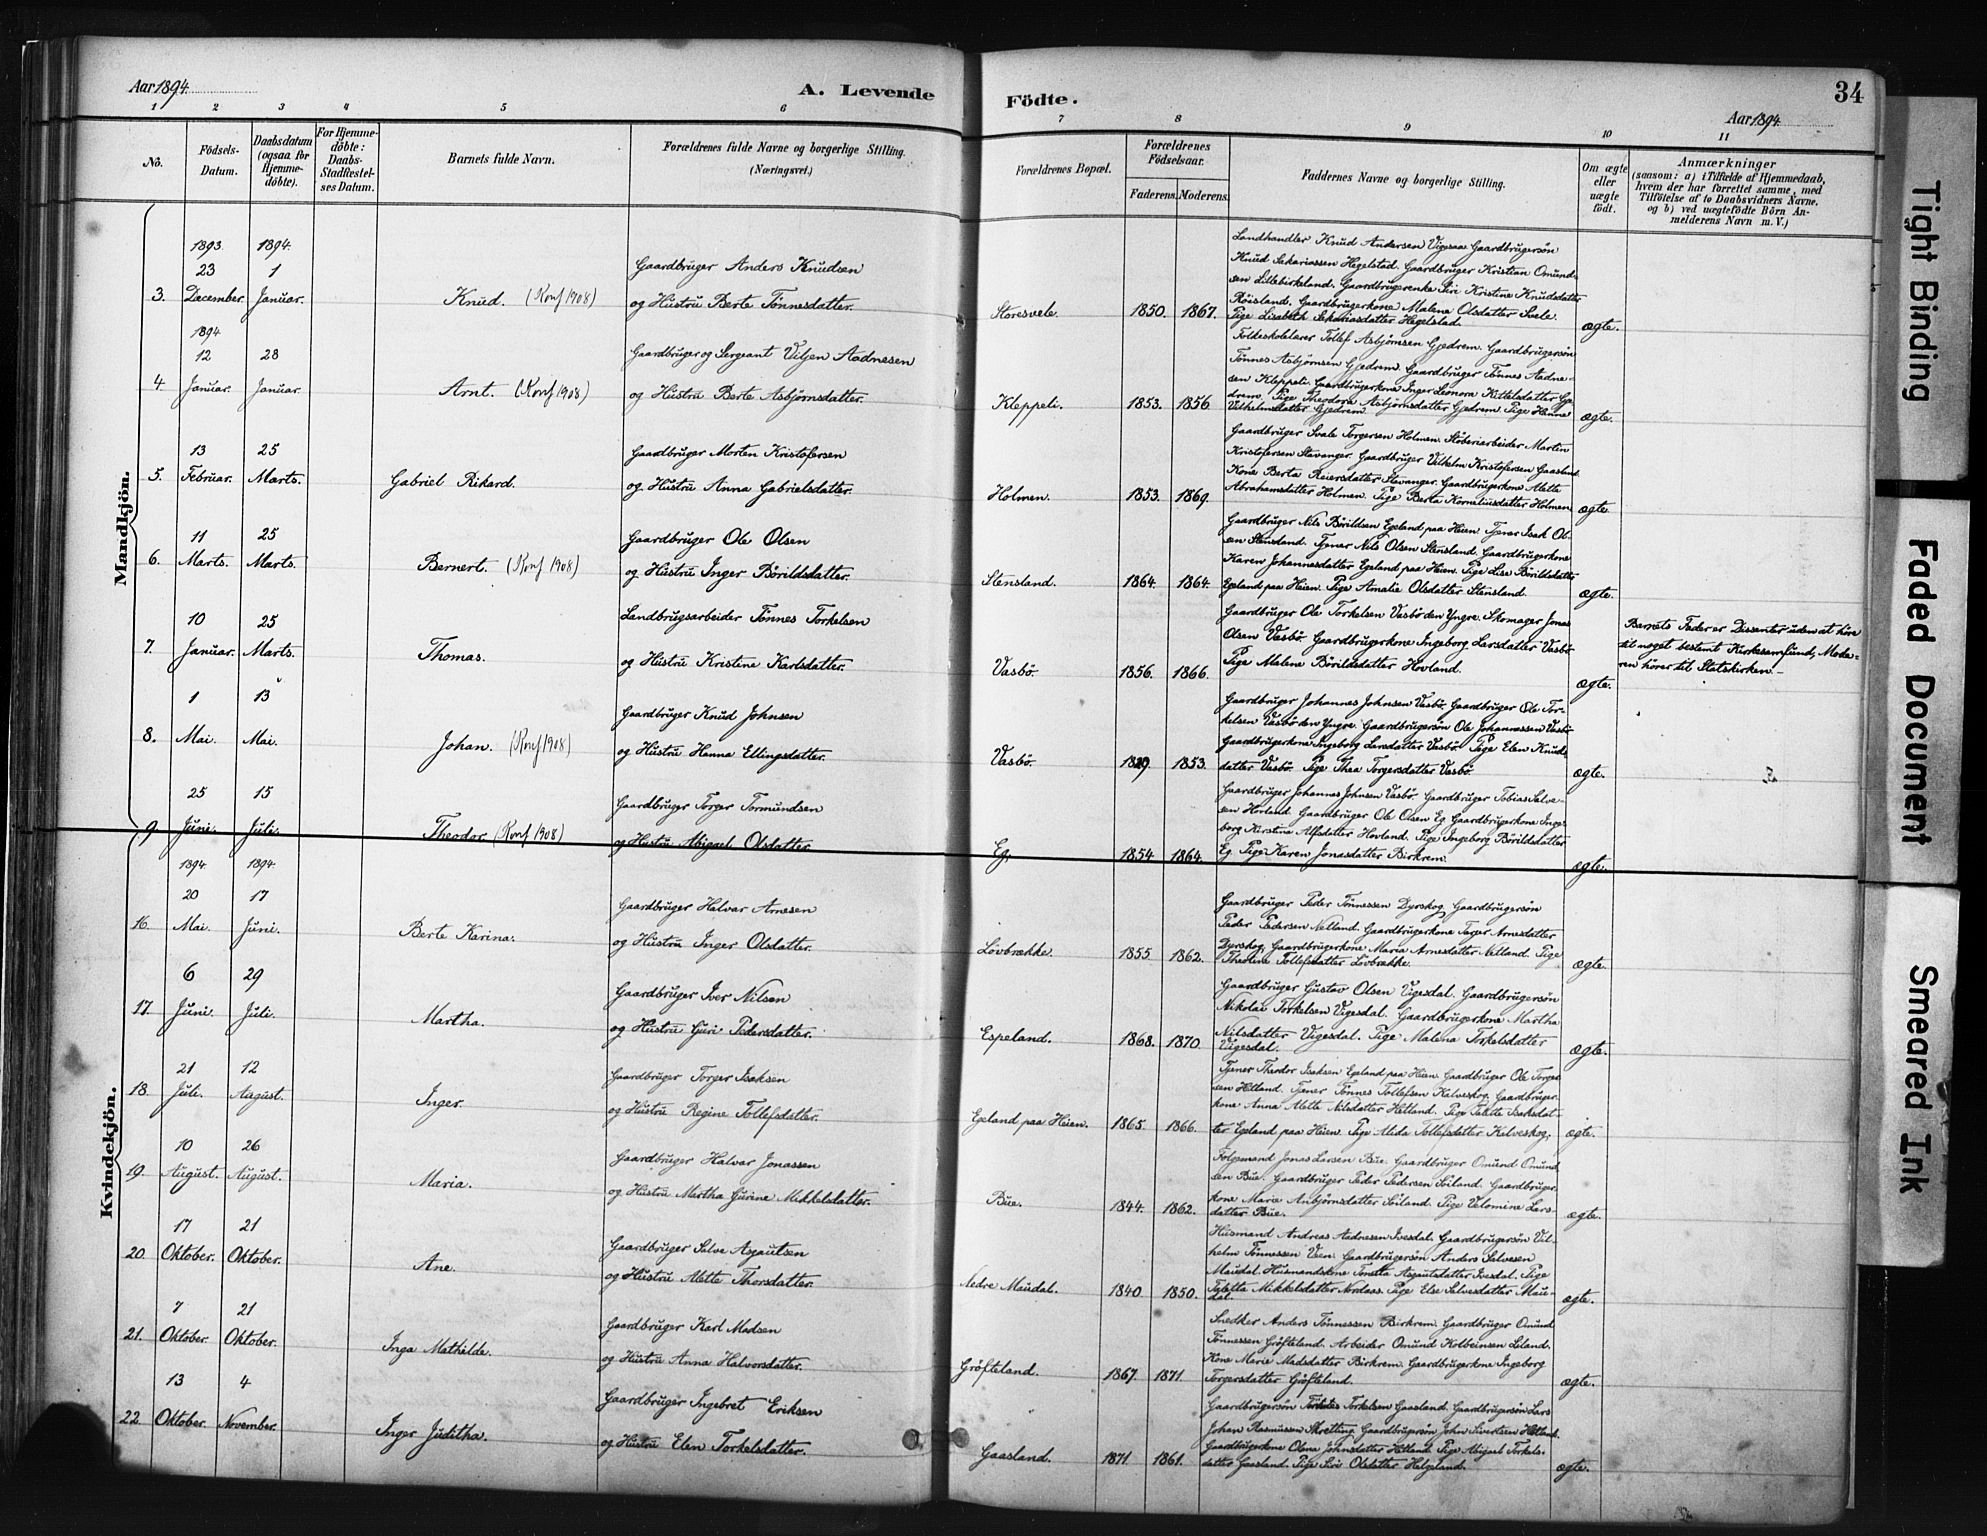 Aar 1894.
A. Levende
Födte.
34
Aar 1894
1 2 3 4 5 6 7 8 9 10 11
No.
Födsels-
Datum.
Daabsdatum
(ogsaa for
Hjemme-
döbte).
For Hjemme-
döbte:
Daabs-
Stadfæstel-
ses Datum.
Barnets fulde Navn.
Forældrenes fulde Navne og borgerlige Stilling.
(Næringsvei.)
Forældrenes Bopæl.
Forældrenes
Födselsaar.
Faderens. Moderens.
Faddernes Navne og borgerlige Stilling.
Om ægte
eller
uægte
födt.
Anmærkninger
(saasom: a) i Tilfælde af Hjemmedaab,
hvem der har forrettet samme, med
Tilföielse af to Daabsvidners Navne.
og b) ved uægtefödte Börn An-
melderens Navn m. V.)
Mandkjön.
1893. 1894.
23 1
Gaardbruger Anders Knudsen
3. December. Januar. Knud. (Konf 1908) og Hustru Berte Tönnesdatter.
Storesvele. 1850. 1867.
Landhandler Knud Andersen Vigesaa Gaardbrugersön
Knud Sakariassen Hegelstad. Gaardbruger Kristian Omund-
sen Litlebirkeland. Gaardbrugerenke Siri Kristine Knudsdatter
Röisland. Gaardbrugerkone Malena Olsdatter Svele.
Pige Lisabeth Sakariasdatter Hegelstad.
ægte.
1894
12 28
Gaardbruger og Sergeant Viljen Aadnesen
4. Januar. Januar. Arnt. (Konf 1908) og Hustru Berte Asbjörnsdatter.
Kleppeli. 1853. 1856.
Folkeskolelærer Tollef Asbjörnsen Gjedrem. Gaardbrugersön
Tönnes Asbjörnsen Gjedrem. Gaardbruger Tönnes Aadne-
sen Kleppeli. Gaardbrugerkone Inger Leonora Kittelsdatter Gje-
drem. Pige Theodora Asbjörnsdatter Gjedrem. Pige Hanne
Vilhelmsdatter Gjedrem.
ægte.
13 25
Gaardbruger Morten Kristofersen
5. Februar. Marts. Gabriel Rikard. og Hustru Anna Gabrielsdatter.
Holmen. 1853. 1869.
Gaardbruger Svale Torgersen Holmen. Stöberiarbeider Martin
Kristofersen Stavanger. Gaardbruger Vilhelm Kristofersen Gaasland.
Kone Berta Reiersdatter Stavanger. Gaardbrugerkone Alette
Abrahamsdatter Holmen. Pige Berta Korneliusdatter Holmen.
ægte.
11 25
Gaardbruger Ole Olsen
6. Marts. Marts. Bernert. (Konf 1908) og Hustru Inger Börildsdatter.
Stensland. 1864. 1864.
Gaardbruger Nils Börildsen Egeland paa Heien. Tjener Isak Ol-
sen Stensland. Tjener Nils Olsen Stensland. Gaardbrugerkone
Karen Johannesdatter Egeland paa Heien. Pige Lise Börildsdatter
Egeland paa Heien. Pige Amalie Olsdatter Stensland.
ægte.
10 25
Landbrugsarbeider Tönnes Torkelsen
7. Januar. Marts. Thomas. og Hustru Kristine Karlsdatter.
Vasbö. 1856. 1866.
Gaardbruger Ole Torkelsen Vasbö den Yngre. Skomager Jonas
Olsen Vasbö. Gaardbrugerkone Ingeborg Larsdatter Vasbö
Pige Malene Börildsdatter Hovland.
ægte.
Barnets Fader er Dissenter uden at höre
til noget bestemt Kirkesamfund, Mode-
ren hörer til Statskirken.
1 13
Gaardbruger Knud Johnsen
8. Mai. Mai. Johan. (Konf 1908) og Hustru Hanna Ellingsdatter.
Vasbö. 1853.
Gaardbruger Johannes Johnsen Vasbö. Gaardbruger Ole Tor-
kelsen Vasbö den Yngre. Gaardbrugersön Ole Johannessen Vasbö
Gaardbrugerkone Ingeborg Larsdatter Vasbö. Pige Elen Knuds-
datter Vasbö. Pige Thea Torgersdatter Vasbö.
ægte.
25 15
Gaardbruger Torger Tormundsen
9. Juni. Juli. Theodor. (Konf 1908) og Hustru Abigael Olsdatter
Eg. 1854 1864.
Gaardbruger Johannes Johnsen Vasbö. Gaardbruger Tobias Salve-
sen Hovland. Gaardbruger Ole Olsen Eg. Gaardbrugerkone Inge-
borg Kirstina Alfsdatter Hovland. Pige Ingeborg Börildsdatter
Eg. Pige Karen Jonasdatter Birkrem.
ægte.
Kvindekjön.
1894. 1894.
20 17
Gaardbruger Halvar Arnesen
16. Mai. Juni. Berte Karina. og Hustru Inger Olsdatter.
Lövbrække. 1855 1862.
Gaardbruger Peder Tönnessen Dyrskog. Gaardbrugersön
Peder Pedersen Netland. Gaardbrugerkone Torger Arnesdatter
Dyrskog. Gaardbrugerkone Maria Arnesdatter Netland. Pige
Thaline Tollefsdatter Lövbrække.
ægte.
6 29
Gaardbruger Iver Nilsen
17. Juni. Juli. Martha. og Hustru Guri Pedersdatter.
Espeland. 1868. 1870.
Gaardbruger Gustav Olsen Vigesdal. Gaardbrugersön
Mikolai Torkelsen Vigesdal. Gaardbrugerkone Martha
Nilsdatter Vigesdal. Pige Malena Torkelsdatter
Vigesdal.
ægte.
21 12
Gaardbruger Torger Isaksen
18. Juli. August. Inger. og Hustru Regine Tollefsdatter.
Egeland paa Heien. 1865. 1866.
Tjener Theodor Isaksen Egeland paa Heien. Gaardbruger Ole Torger-
sen Hetland. Tjener Tönnes Tollefsen Kalveskog. Gaardbruger-
kone Anna Alette Nilsdatter Hetland. Pige Isaksdat-
ter Egeland paa Heien. Pige Alida Tollefsdatter Kalveskog.
ægte.
10 26
Gaardbruger Halvar Jonassen
19. August. August. Maria. og Hustru Martha Gurine Mikkelsdatter.
Bue. 1844. 1862.
Folgemand Jonas Larsen Bue. Gaardbruger Omund Omund-
sen Bue. Gaardbruger Peder Pedersen Söiland. Gaardbruger-
kone Marie Anbjörnsdatter Söiland. Pige Velomine Lars-
datter Bue.
ægte.
17 21
Gaardbruger Salve Asgautsen
20. Oktober. Oktober. Ane. og Hustru Alette Thorsdatter.
Nedre Maudal. 1840 1850.
Husmand Andreas Aadnesen Ivesdal. Gaardbrugersön Vil-
helm Tönnessen Veen. Gaardbrugersön Anders Salvesen
Maudal. Husmandskone Tonette Asgautsdatter Ivesdal. Pige
Mikkelsdatter Nordaas. Pige Else Salvesdatter Mau-
dal.
ægte.
7 21
Gaardbruger Karl Madsen
21. Oktober. Oktober. Inga Mathilde. og Hustru Anna Halvorsdatter.
Gröfteland. 1867. 1871.
Snedker Anders Tönnessen Birkrem. Gaardbruger Omund
Tönnessen Gröfteland. Arbeider Omund Kolbeinsen Liland.
Kone Marie Madsdatter Birkrem. Gaardbrugerkone Ingeborg
Torgersdatter Gröfteland.
ægte.
13 4
Gaardbruger Ingebret Eriksen
22. Oktober. November. Inger Juditha. og Hustru Elen Torkelsdatter.
Gaasland. 1871. 1861.
Gaardbrugersön Torkelsen Gaasland. Gaardbrugersön Lars
Johan Rasmussen Skretting. Gaardbrugersön John Sivertsen Hetland.
Gaardbrugerkone Olena Johnsdatter Hetland. Pige Abigael Torkels-
datter Gaasland. Pige Siri Olsdatter Helgeland.
ægte.
Tight Binding
Faded Document
Smeared Ink